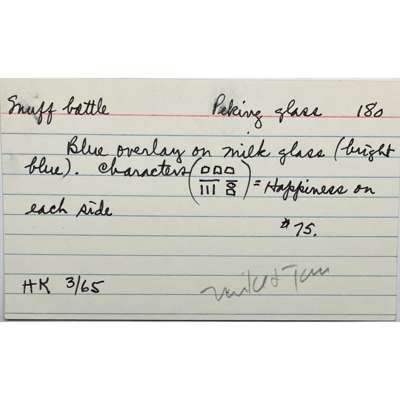 Snuff bottle Peking glass 180
Blue overlay on milk glass (bright
blue). Characters ( ) = Happiness on
each side
$75.
HK 3/65